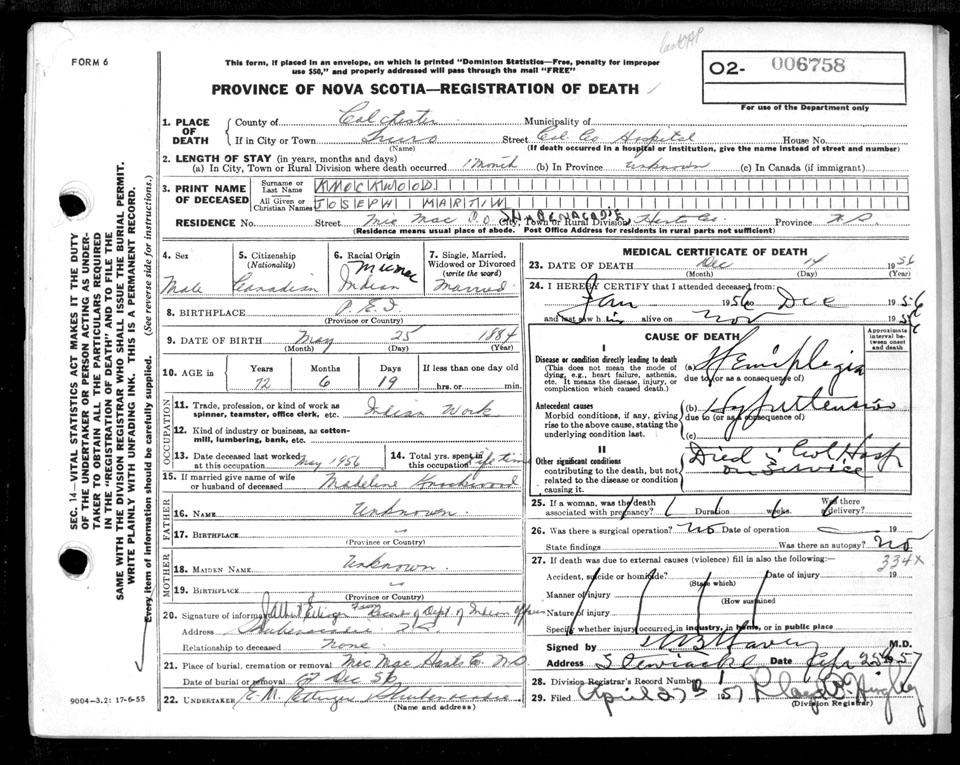 FORM 6
This form, if placed in an envelope, on which is printed "Dominion Statistics—Free, penalty for improper
use $50," and properly addressed will pass through the mail "FREE"
PROVINCE OF NOVA SCOTIA—REGISTRATION OF DEATH
O2- 006758
For use of the Department only
SEC. 14—VITAL STATISTICS ACT MAKES IT THE DUTY
OF THE UNDERTAKER OR PERSON ACTING AS UNDER-
TAKER TO OBTAIN ALL THE PARTICULARS REQUIRED
IN THE "REGISTRATION OF DEATH" AND TO FILE THE
SAME WITH THE DIVISION REGISTRAR WHO SHALL ISSUE THE BURIAL PERMIT.
WRITE PLAINLY WITH UNFADING INK. THIS IS A PERMANENT RECORD.
Every item of information should be carefully supplied. (See reverse side for instructions.)
1. PLACE OF DEATH County of Colchester Municipality of
If in City or Town Truro Street Col Co Hospital House No.
(Name) (If death occurred in a hospital or institution, give the name instead of street and number)
2. LENGTH OF STAY (in years, months and days)
(a) In City, Town or Rural Division where death occurred 1 Month (b) In Province Unknown (c) In Canada (if immigrant)
3. PRINT NAME OF DECEASED Surname or Last Name KNOCKWOOD
All Given or Christian Names JOSEPH MARTIN
RESIDENCE No. Street Mic Mac P.O. SHUBENACADIE City, Town or Rural Division Hants Co. Province N.S.
(Residence means usual place of abode. Post Office Address for residents in rural parts not sufficient)
4. Sex Male
5. Citizenship (Nationality) Canadian
6. Racial Origin Micmac Indian
7. Single, Married, Widowed or Divorced (write the word) Married
8. BIRTHPLACE P.E.I.
(Province or Country)
9. DATE OF BIRTH May 25 1884
(Month) (Day) (Year)
10. AGE in Years Months Days If less than one day old
72 6 19 hrs. or min.
OCCUPATION
11. Trade, profession, or kind of work as
spinner, teamster, office clerk, etc. Indian Work
12. Kind of industry or business, as cotton-
mill, lumbering, bank, etc.
13. Date deceased last worked at this occupation May 1956
14. Total yrs. spent in this occupation life time
15. If married give name of wife
or husband of deceased Madeline Knockwood
FATHER
16. Name Unknown
17. Birthplace "
(Province or Country)
MOTHER
18. Maiden Name Unknown
19. Birthplace "
(Province or Country)
20. Signature of informant from Record of Dept. of Indian Affairs
Address Shubenacadie N.S.
Relationship to deceased None
21. Place of burial, cremation or removal Mic Mac Hants Co. N.S.
Date of burial or removal 17 Dec 56
22. Undertaker E. M. Ettinger Shubenacadie
(Name and address)
9004—3.2: 17-6-55
MEDICAL CERTIFICATE OF DEATH
23. DATE OF DEATH Dec 14 1956
(Month) (Day) (Year)
24. I HEREBY CERTIFY that I attended deceased from:
Jan 1956 to Dec 1956
and last saw h im alive on Nov 1956
CAUSE OF DEATH
Approximate interval between onset and death
I
Disease or condition directly leading to death
(This does not mean the mode of
dying, e.g., heart failure, asthenia,
etc. It means the disease, injury, or
complication which caused death.)
(a) Hemiplegia
due to (or as a consequence of)
Antecedent causes
Morbid conditions, if any, giving
rise to the above cause, stating the
underlying condition last.
(b) Hypertension
due to (or as a consequence of)
(c)
II
Other significant conditions
contributing to the death, but not
related to the disease or condition
causing it.
Died in Col Hosp
on Service
25. If a woman, was the death
associated with pregnancy? Duration weeks Was there delivery?
26. Was there a surgical operation? No Date of operation 19
State findings Was there an autopsy? No
27. If death was due to external causes (violence) fill in also the following:— 334x
Accident, suicide or homicide? Date of injury 19
(State which)
Manner of injury
(How sustained
Nature of injury
Specify whether injury occurred in industry, in home, or in public place
Signed by M.D.
Address Stewiacke Date 25 57
28. Division Registrar's Record Number
29. Filed April 27 1957
(Division Registrar)